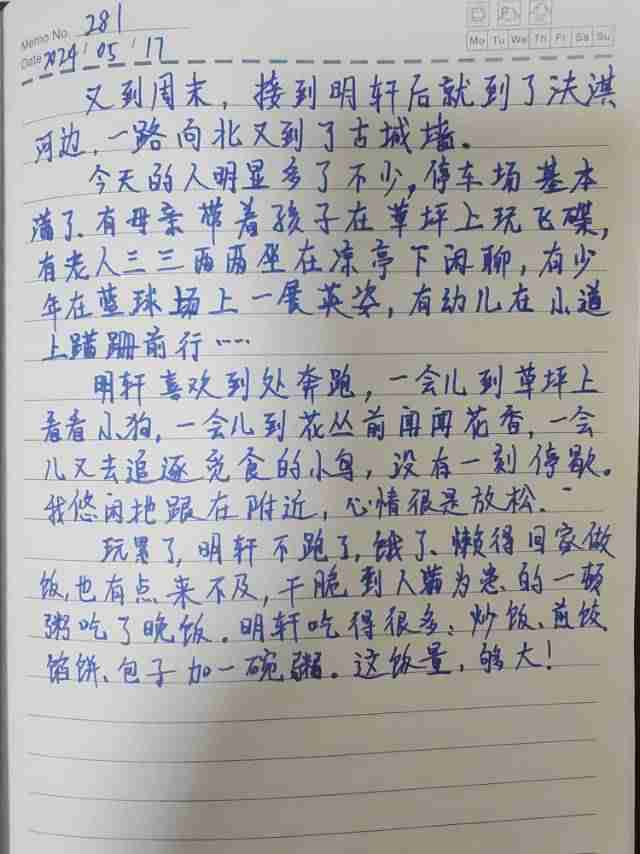 Memo No. 281
Mo Tu We Th Fr Sa Su
Date 2024 / 05 / 17
又到周末，接到明轩后就到了洪淇
河边，一路向北又到了古城墙。
今天的人明显多了不少，停车场基本
满了、有母亲带着孩子在草坪上玩飞碟，
有老人三三两两坐在凉亭下闲聊，有少
年在蓝球场上一展英姿，有幼儿在小道
上蹒跚前行……
明轩喜欢到处奔跑，一会儿到草坪上
看看小狗，一会儿到花丛前闻闻花香，一会
儿又去追逐觅食的小鸟，没有一刻停歇。
我悠闲地跟在附近，心情很是放松.
玩累了，明轩不跑了，饿了、懒得回家做
饭，也有点来不及，干脆到人满为患的一顿
粥吃了晚饭．明轩吃得很多：炒饭、煎饺、
馅饼、包子加一碗粥。这饭量，够大！